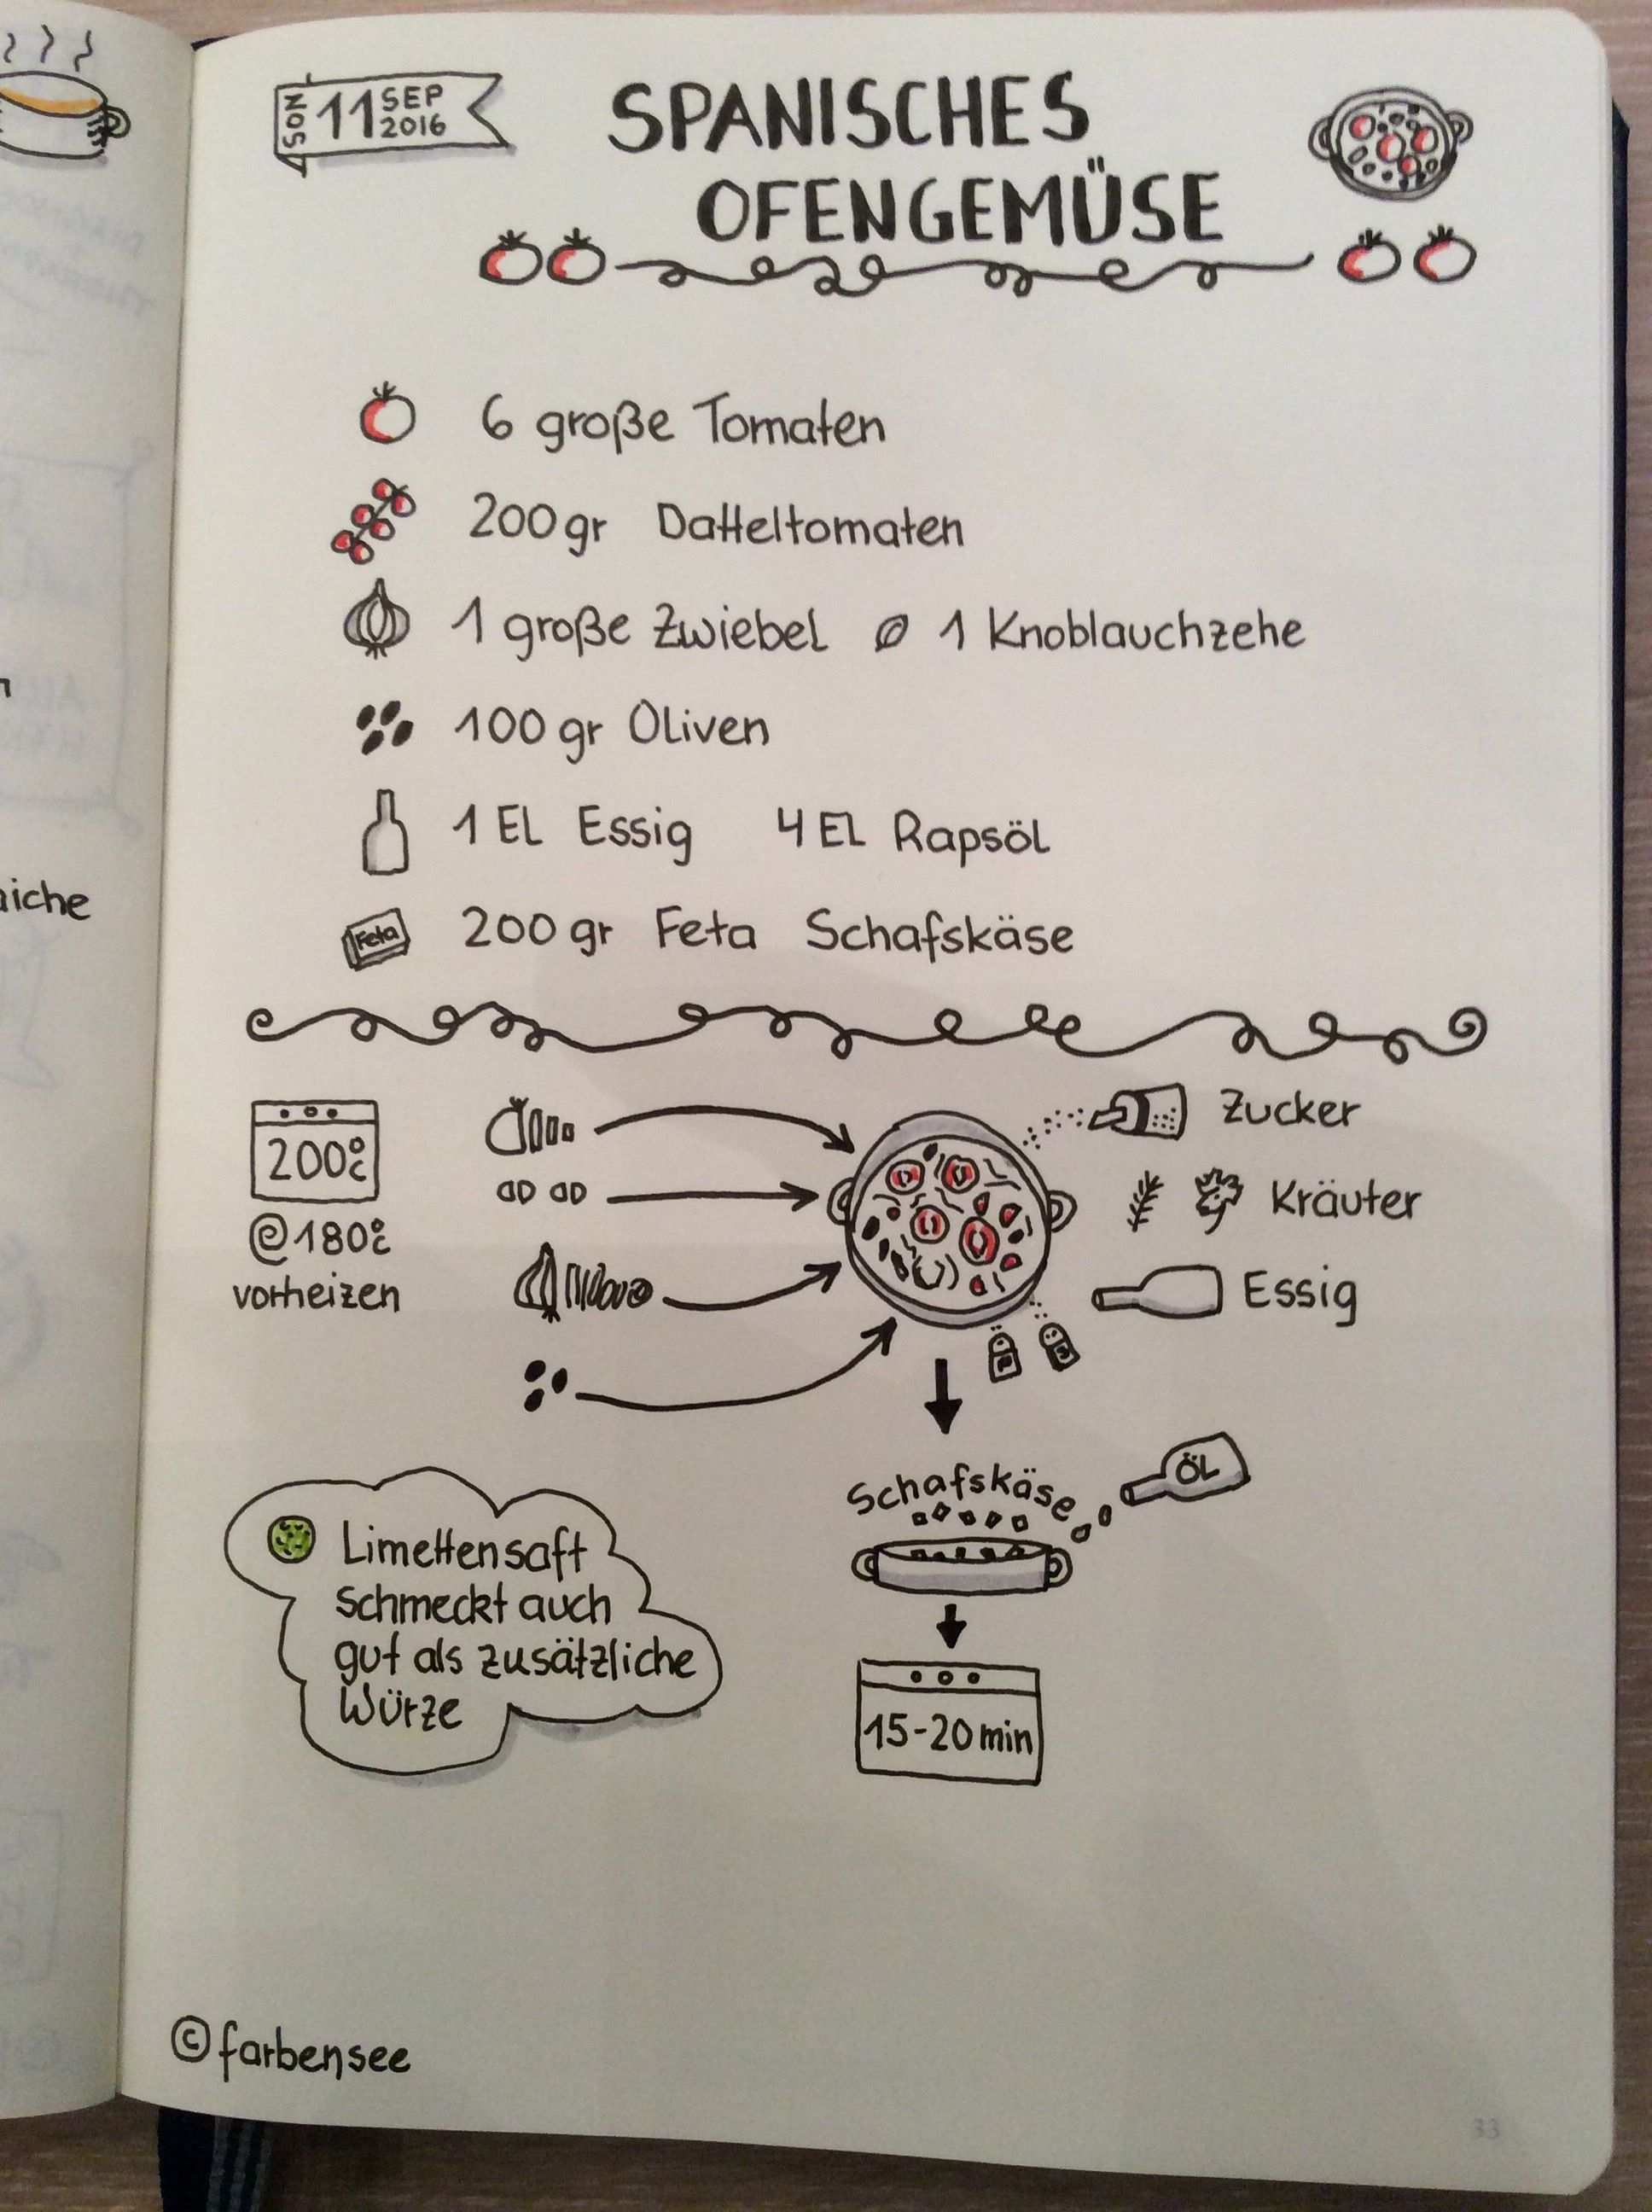 SON 11 SEP 2016
SPANISCHES
OFENGEMÜSE
6 große Tomaten
200gr Datteltomaten
1 große Zwiebel 1 Knoblauchzehe
100gr Oliven
1 EL Essig 4 EL Rapsöl
Feta 200gr Feta Schafskäse
aiche
200°C
@180°C
vorheizen
Zucker
Kräuter
Essig
Schafskäse
ÖL
15-20min
Limettensaft
schmeckt auch
gut als zusätzliche
Würze
©farbensee
33